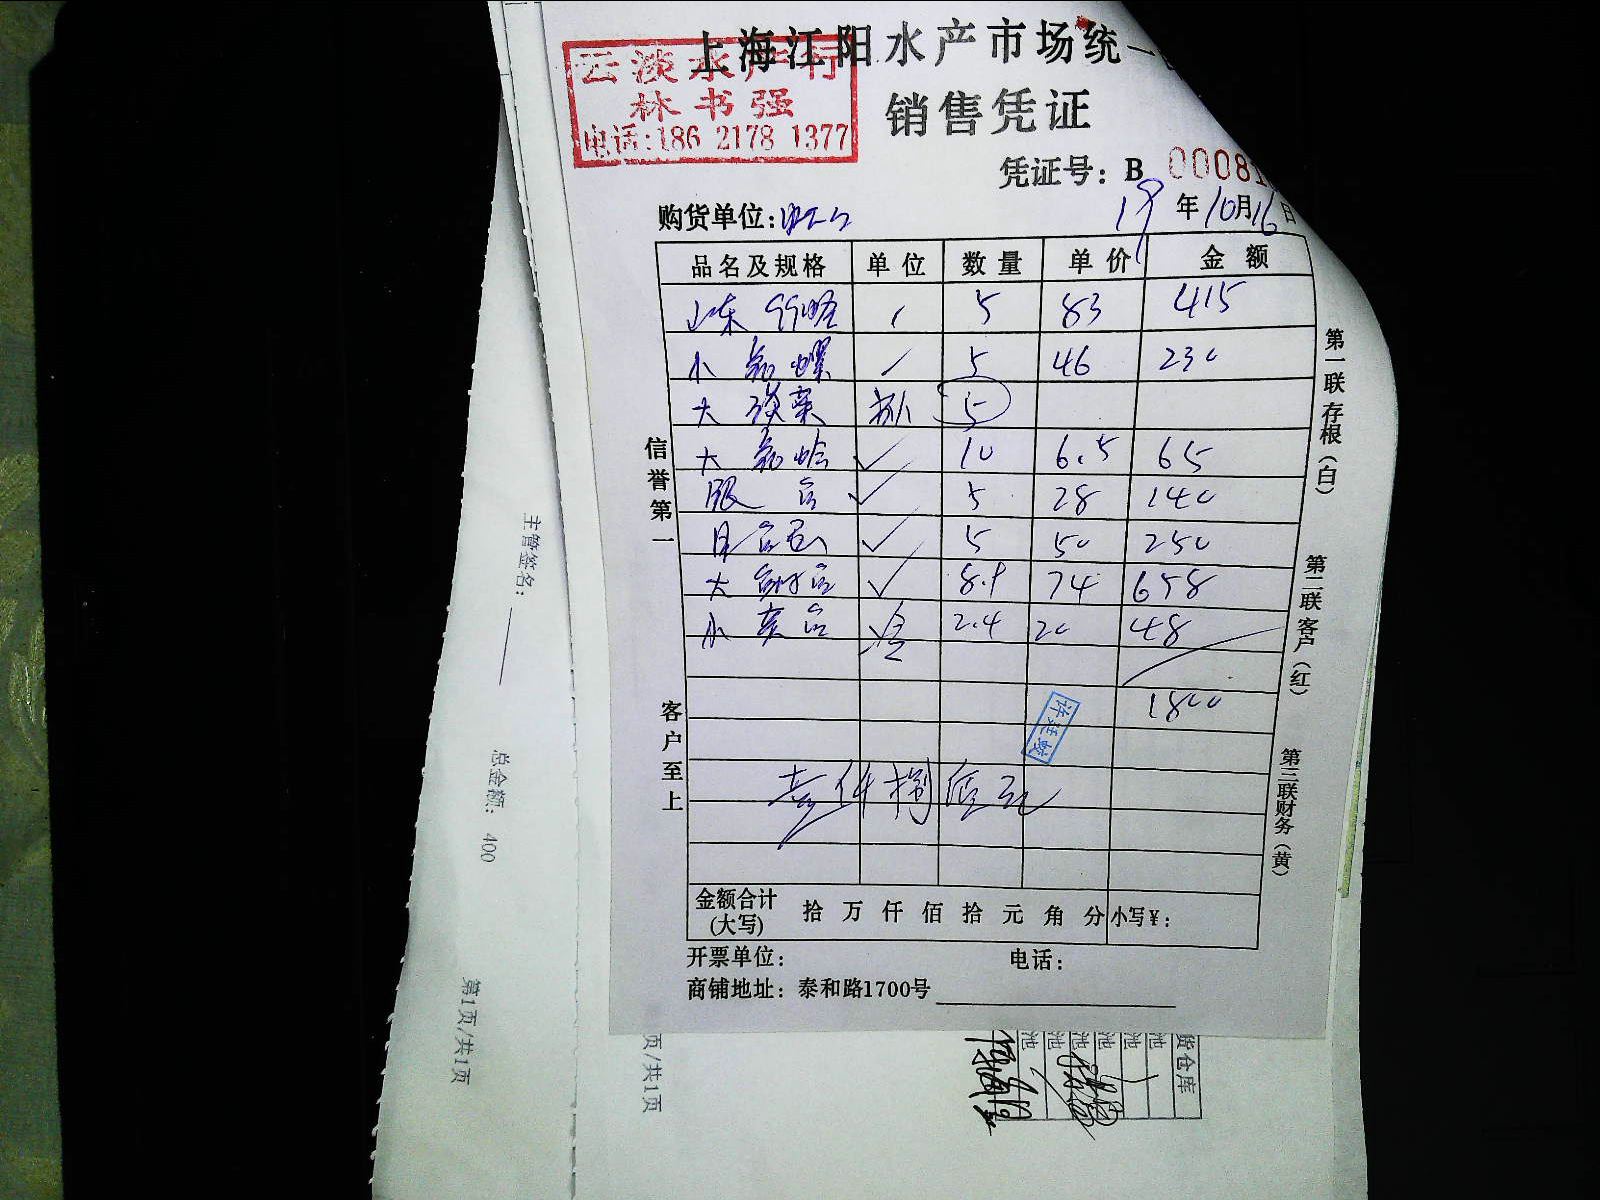 上海江阳水产市场统一
云淡水产行
林书强
电话:186 2178 1377
销售凭证
凭证号: B 00081
购货单位:
19年10月16日
品名及规格 单位 数量 单价 金额
山东 5 83 415
小 螺 5 46 230
大 菜 扒 5
大 蛤 10 6.5 65
5 28 140
5 50 250
大 8.9 74 658
小 2.4 20 48
1800
许廷敏
壹仟捌佰元
金额合计(大写) 拾 万 仟 佰 拾 元 角 分 小写¥:
开票单位: 电话:
商铺地址: 泰和路1700号
信誉第一
客户至上
第一联存根(白)
第二联客户(红)
第三联财务(黄)
主管签名:
总金额: 400
第1页/共1页
页/共1页
货仓库
池
池
池
池
池
池